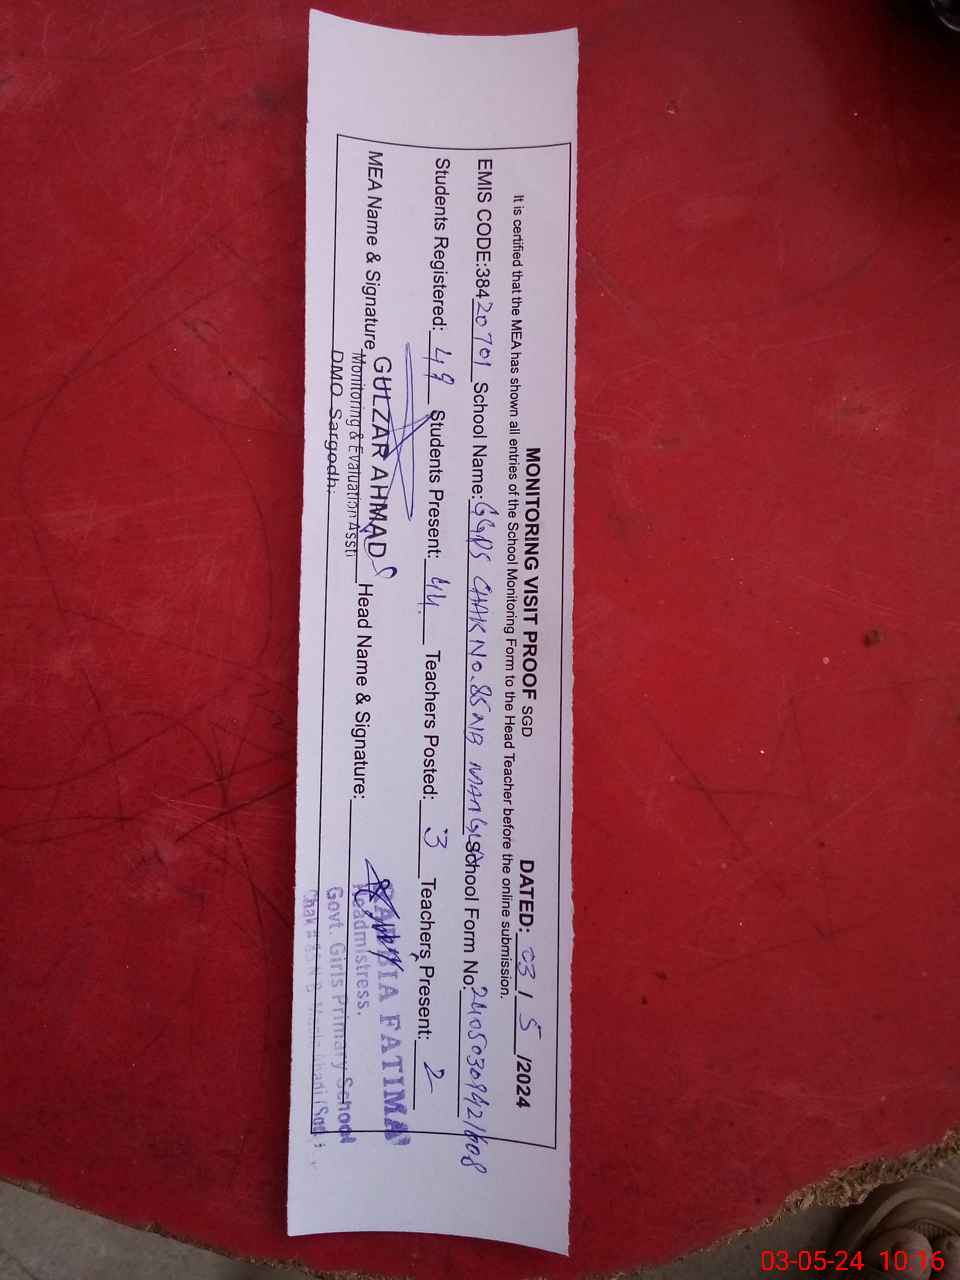 MONITORING VISIT PROOF SGD DATED: 03 / 5 /2024
It is certified that the MEA has shown all entries of the School Monitoring Form to the Head Teacher before the online submission.
EMIS CODE:38420701 School Name: GGPS CHAK No. 85 N/B School Form No.
Students Registered: 49 Students Present: 44 Teachers Posted: 3 Teachers Present: 2
MEA Name & Signature GULZAR AHMAD Head Name & Signature: FATIMA
Monitoring & Evaluation Asstt Headmistress.
DMO Sargodh: Govt. Girls Primary School
Chak # 85 N B
03-05-24 10:16